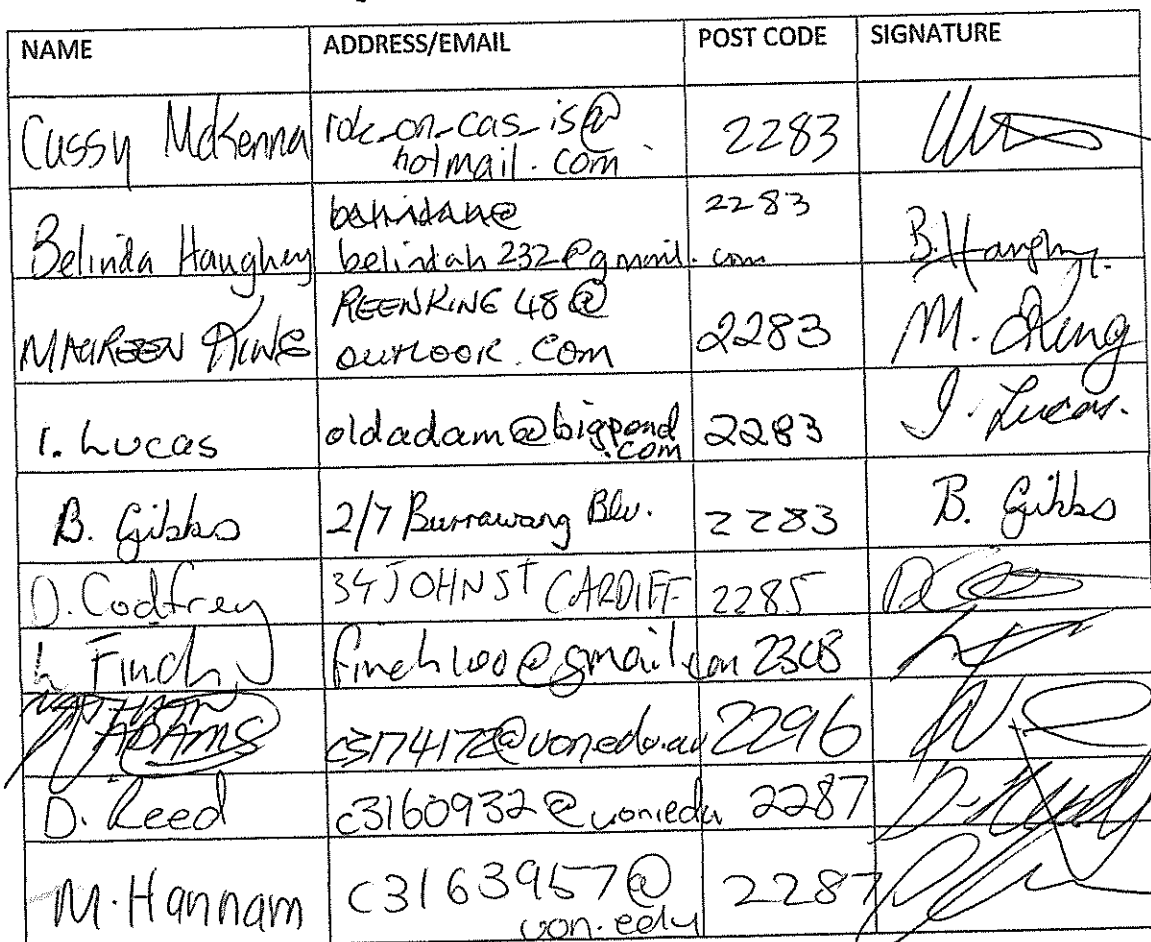 NAME ADDRESS/EMAIL POST CODE SIGNATURE
Cassy McKenna rok_on_cas_is@ 2283
hotmail.com
2283
Belinda Haughey belindah232@gmail.com B. Haughey
MAUREEN KING REENKING48@ 2283 M. King
OUTLOOK.COM
I. Lucas oldadam@bigpond 2283 I. Lucas.
.com
B. Gibbs 2/7 Burrawang Blv. 2283 B. Gibbs
D. Godfrey 34 JOHN ST CARDIFF 2285
L Finch @gmail.com 2308
ADAMS c3174172@uon.edu.au 2296
D. Reed c3160932@uon.edu 2287
M. Hannam c3163957@ 2287
uon.edu